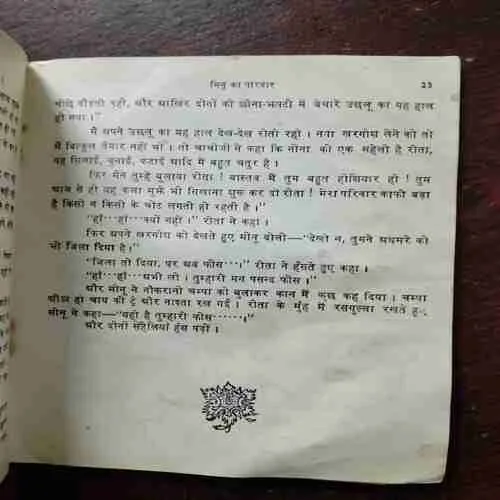 मिनू का परिवार
23
पीछे दौड़ती रही, और आखिर दोनों की छीना-झपटी में बेचारे उछलू का यह हाल
हो गया।"
में अपने उछलू का यह हाल देख-देख रोती रही। नया खरगोश लेने को तो
मैं बिल्कुल तैयार नहीं थी। तो चाचीजी ने कहा कि सोना की एक सहेली है रीता,
वह सिलाई, बुनाई, कटाई आदि में बहुत चतुर है।
फिर मैंने तुम्हें बुलाया रीता! वास्तव में तुम बहुत होशियार हो! तुम
आज से ही यह कला मुझे भी सिखाना शुरू कर दो रीता! मेरा परिवार काफी बड़ा
है किसी न किसी के चोट लगती ही रहती है।"
"हाँ···हाँ···क्यों नहीं।" रीता ने कहा।
फिर अपने खरगोश को देखते हुए मीनू बोली—"देखो न, तुमने अधमरे को
भी जिला दिया है।"
"जिला तो दिया, पर अब फीस···।" रीता ने हँसते हुए कहा।
"हाँ···हाँ···अभी लो। तुम्हारी मन पसन्द फीस।"
और मीनू ने नौकरानी चम्पा को बुलाकर कान में कुछ कह दिया। चम्पा
शीघ्र ही चाय की ट्रे और नाश्ता रख गई। रीता के मुँह में रसगुल्ला रखते हुए
मीनू ने कहा—"यही है तुम्हारी फीस······।"
और दोनों सहेलियाँ हँस पड़ीं।